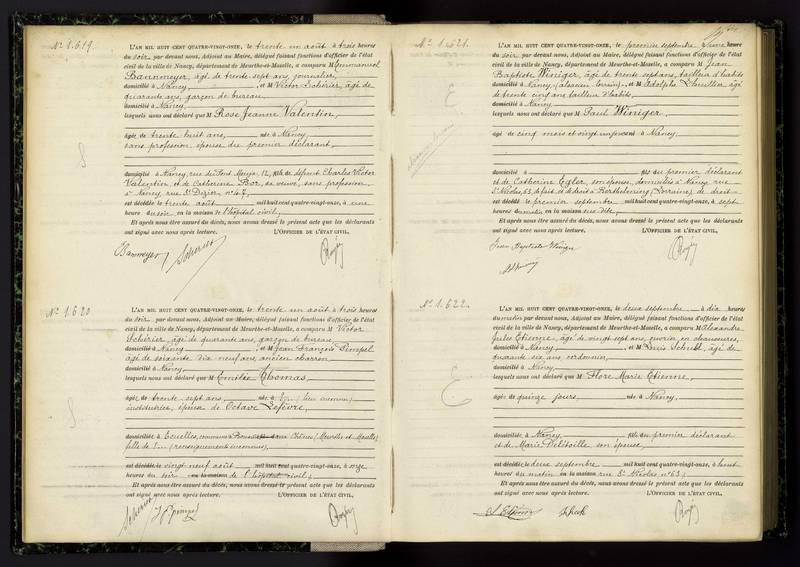 N° 1.619.
L'AN MIL HUIT CENT QUATRE-VINGT-ONZE, le trente un août à trois heures
du soir par devant nous, Adjoint au Maire, délégué faisant fonctions d'officier de l'état
civil de la ville de Nancy, département de Meurthe-et-Moselle, a comparu M Emmanuel
Bannmeyer, âgé de trente sept ans, journalier,
domicilié à Nancy, et M Victor Schérier, âgé de
quarante ans, garçon de bureau
domicilié à Nancy
lesquels nous ont déclaré que M Rose Jeanne Valentin,
âgée de trente huit ans, née à Nancy,
sans profession, épouse du premier déclarant,
domiciliée à Nancy, rue du 12, fille de défunt Charles Victor
Valentin, et de Catherine Bor, sa veuve, sans profession,
à Nancy, rue St Dizier n° 47,
est décédée le trente août mil huit cent quatre-vingt-onze, à une
heure du soir en la maison de l'hôpital civil,
Et après nous être assuré du décès, nous avons dressé le présent acte que les déclarants
ont signé avec nous après lecture. L'OFFICIER DE L'ÉTAT CIVIL,
Bannmeyer Scherier
N° 1.620
L'AN MIL HUIT CENT QUATRE-VINGT-ONZE, le trente un août à trois heures
du soir par devant nous, Adjoint au Maire, délégué faisant fonctions d'officier de l'état
civil de la ville de Nancy, département de Meurthe-et-Moselle, a comparu M Victor
Schérier, âgé de quarante ans, garçon de bureau
domicilié à Nancy, et M Jean François
âgé de soixante dix neuf ans, ancien charron
domicilié à Nancy,
lesquels nous ont déclaré que M Thomas,
âgée de trente sept ans née à (lieu inconnu)
institutrice, épouse de Octave Lefèvre,
domiciliée à Ecuelles, commune de (Meurthe et Moselle)
fille de (renseignements inconnus),
est décédée le vingt neuf août mil huit cent quatre-vingt-onze, à onze
heures du soir en la maison de l'hôpital civil,
Et après nous être assuré du décès, nous avons dressé le présent acte que les déclarants
ont signé avec nous après lecture. L'OFFICIER DE L'ÉTAT CIVIL,
Scherier
N° 1.621.
L'AN MIL HUIT CENT QUATRE-VINGT-ONZE, le premier septembre à une heure
du soir par devant nous, Adjoint au Maire, délégué faisant fonctions d'officier de l'état
civil de la ville de Nancy, département de Meurthe-et-Moselle, a comparu M Jean
Baptiste Winiger, âgé de trente sept ans, tailleur d'habits
domicilié à Nancy (alsacien lorrain), et M Adolphe âgé
de trente cinq ans tailleur d'habits,
domicilié à Nancy
lesquels nous ont déclaré que M Paul Winiger,
âgé de cinq mois et vingt né à Nancy,
domicilié à fils du premier déclarant
et de Catherine Egler, son épouse, domiciliés à Nancy rue
St Nicolas, 65, de fait et de droit à (Lorraine) de droit
est décédé le premier septembre mil huit cent quatre-vingt-onze, à sept
heures du matin en la maison sus dite,
Et après nous être assuré du décès, nous avons dressé le présent acte que les déclarants
ont signé avec nous après lecture. L'OFFICIER DE L'ÉTAT CIVIL,
Jean Baptiste Winiger
N° 1.622.
L'AN MIL HUIT CENT QUATRE-VINGT-ONZE, le deux septembre à dix heures
du matin par devant nous, Adjoint au Maire, délégué faisant fonctions d'officier de l'état
civil de la ville de Nancy, département de Meurthe-et-Moselle, a comparu M Alexandre
Jules Etienne, âgé de vingt sept ans, ouvrier en chaussures,
domicilié à Nancy, et M Louis âgé de
quarante six ans, cordonnier
domicilié à Nancy
lesquels nous ont déclaré que M Flore Marie Etienne,
âgée de quinze jours, née à Nancy,
domiciliée à Nancy fille du premier déclarant
et de Marie son épouse
est décédée le deux septembre mil huit cent quatre-vingt-onze, à huit
heures du matin en la maison rue St Nicolas, n° 63,
Et après nous être assuré du décès, nous avons dressé le présent acte que les déclarants
ont signé avec nous après lecture. L'OFFICIER DE L'ÉTAT CIVIL,